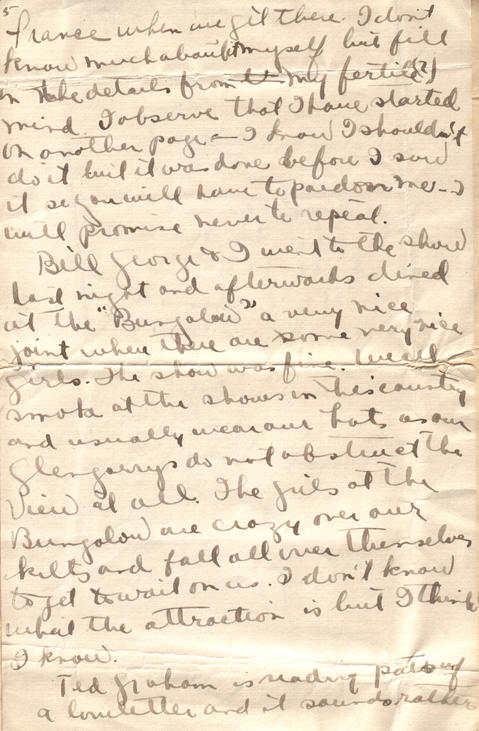 5
France when we git there. I don't
know much about myself but fill
in the details from my fertile (?)
mind. I observe that I have started
on another page — I know I shouldn't
do it but it was done before I saw
it so you will have to pardon me — I
will promise never to repeat.
Bill George & I went to the show
last night and afterwards dined
at the "Bungalow" a very nice
joint where there are some very nice
girls. The show was fine. We all
smoke at the shows in this country
and usually wear our hats as our
Glengarrys do not obstruct the
view at all. The girls at the
Bungalow are crazy over our
kilts and fall all over themselves
to get to wait on us. I don't know
what the attraction is but I think
I know.
Ted Graham is reading parts of
a love letter and it sounds rather